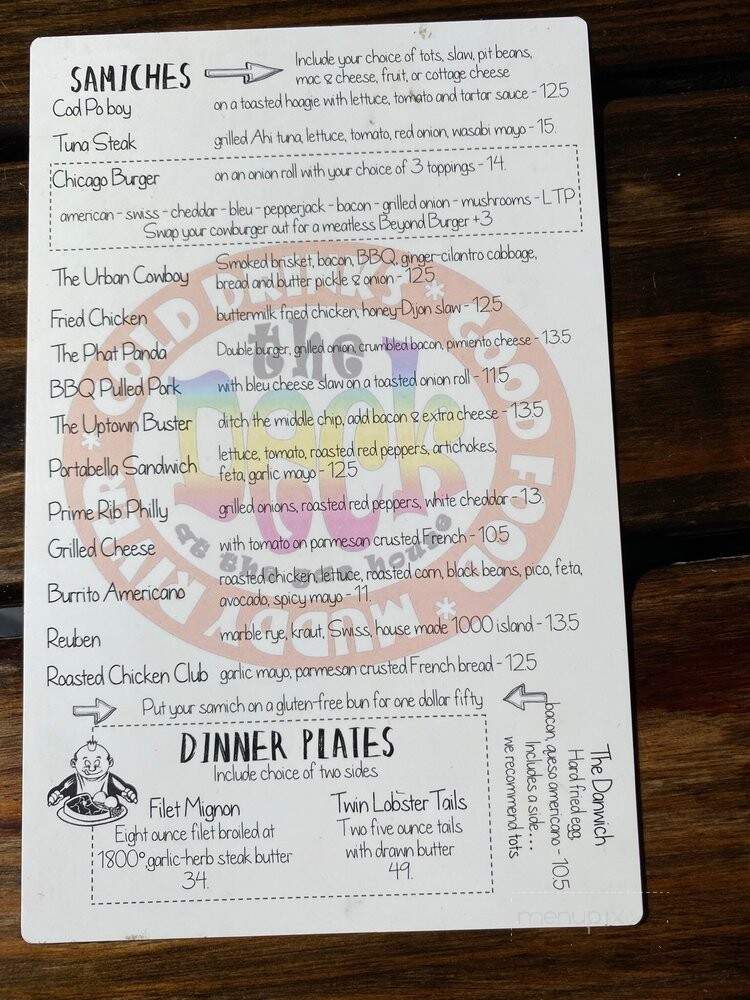 SAMICHES
Include your choice of tots, slaw, pit beans,
mac & cheese, fruit, or cottage cheese
Cod Po boy on a toasted hoagie with lettuce, tomato and tartar sauce - 12.5
Tuna Steak grilled Ahi tuna, lettuce, tomato, red onion, wasabi mayo - 15.
Chicago Burger on an onion roll with your choice of 3 toppings - 14.
american - swiss - cheddar - bleu - pepperjack - bacon - grilled onion - mushrooms - LTP
Swap your cowburger out for a meatless Beyond Burger +3
The Urban Cowboy Smoked brisket, bacon, BBQ, ginger-cilantro cabbage,
bread and butter pickle & onion - 12.5
Fried Chicken buttermilk fried chicken, honey-Dijon slaw - 12.5
The Phat Panda Double burger, grilled onion, crumbled bacon, pimiento cheese - 13.5
BBQ Pulled Pork with bleu cheese slaw on a toasted onion roll - 11.5
The Uptown Buster ditch the middle chip, add bacon & extra cheese - 13.5
Portabella Sandwich lettuce, tomato, roasted red peppers, artichokes,
feta, garlic mayo - 12.5
Prime Rib Philly grilled onions, roasted red peppers, white cheddar - 13.
Grilled Cheese with tomato on parmesan crusted French - 10.5
Burrito Americano roasted chicken lettuce, roasted corn, black beans, pico, feta,
avocado, spicy mayo - 11.
Reuben marble rye, kraut, Swiss, house made 1000 island - 13.5
Roasted Chicken Club garlic mayo, parmesan crusted French bread - 12.5
Put your samich on a gluten-free bun for one dollar fifty
DINNER PLATES
Include choice of two sides
Filet Mignon
Eight ounce filet broiled at
1800°,garlic-herb steak butter
34.
Twin Lobster Tails
Two five ounce tails
with drawn butter
49.
The Danwich
Hard fried egg,
bacon, queso americano - 10.5
Includes a side....
we recommend tots
COLD DRINKS * GOOD FOOD * MUDDY RIVER *
the
Deck
at the gas house
menupix